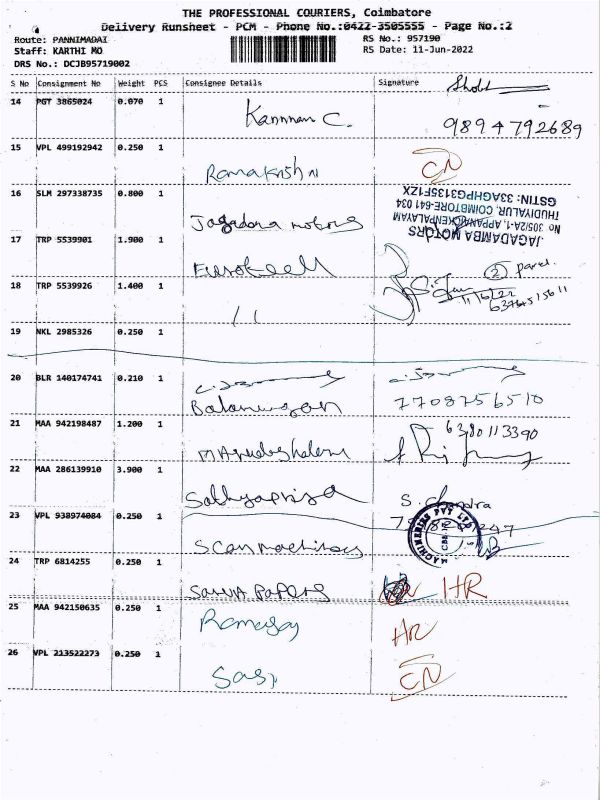 THE PROFESSIONAL COURIERS, Coimbatore
Delivery Runsheet - PCM - Phone No.:0422-3505555 - Page No.:2
Route: PANNIMADAI
RS No.: 957190
Staff: KARTHI MO
RS Date: 11-Jun-2022
DRS No.: DCJB95719002
S No Consignment No Weight PCS Consignee Details Signature
14 PGT 3865024 0.070 1 Kannnan C.
9894792689
15 VPL 499192942 0.250 1 Ramakrish CN
16 SLM 297338735 0.800 1 Jagadara motors
JAGADAMBA MOTORS
No 305/2A-1, APPANAICKENPALAYAM
THUDIYALUR, COIMBTORE-641 034
GSTIN: 33AGHPG3135F1ZX
17 TRP 5539901 1.900 1
2 parcel.
18 TRP 5539926 1.400 1 11
11/6/22
19 NKL 2985326 0.250 1
20 BLR 140174741 0.210 1 Balamurugan
7708756510
21 MAA 942198487 1.200 1
6380113390
22 MAA 286139910 3.900 1 Sathyapriya S. Chandra
23 VPL 938974084 0.250 1 Scan machines
24 TRP 6814255 0.250 1 Papers HR
25 MAA 942150635 0.250 1 Ramesay HR
26 VPL 213522273 0.250 1 Sasi CN